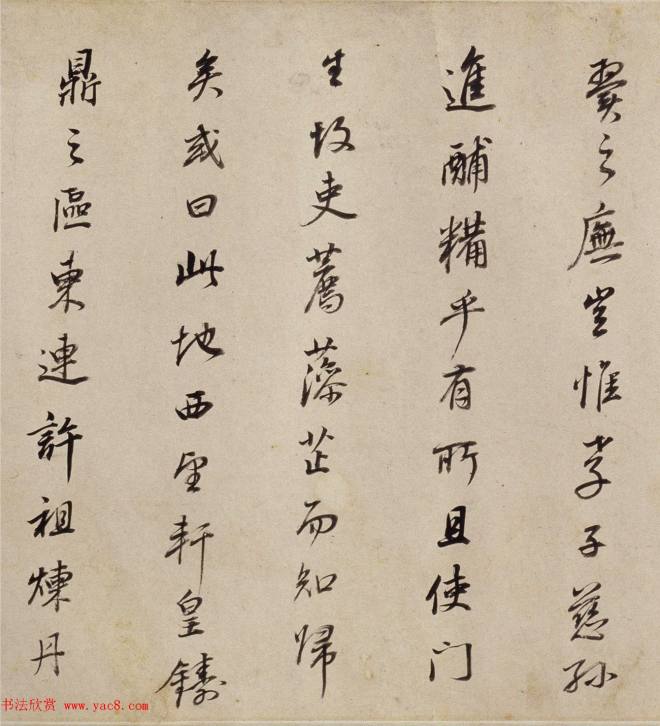 翼之廡豈惟孝子慈孫
進酺糒乎有所且使门
生故吏薦藻芷而知歸
矣或曰此地西望軒皇鑄
鼎之區東連許祖煉丹
书法欣赏 www.yac8.com